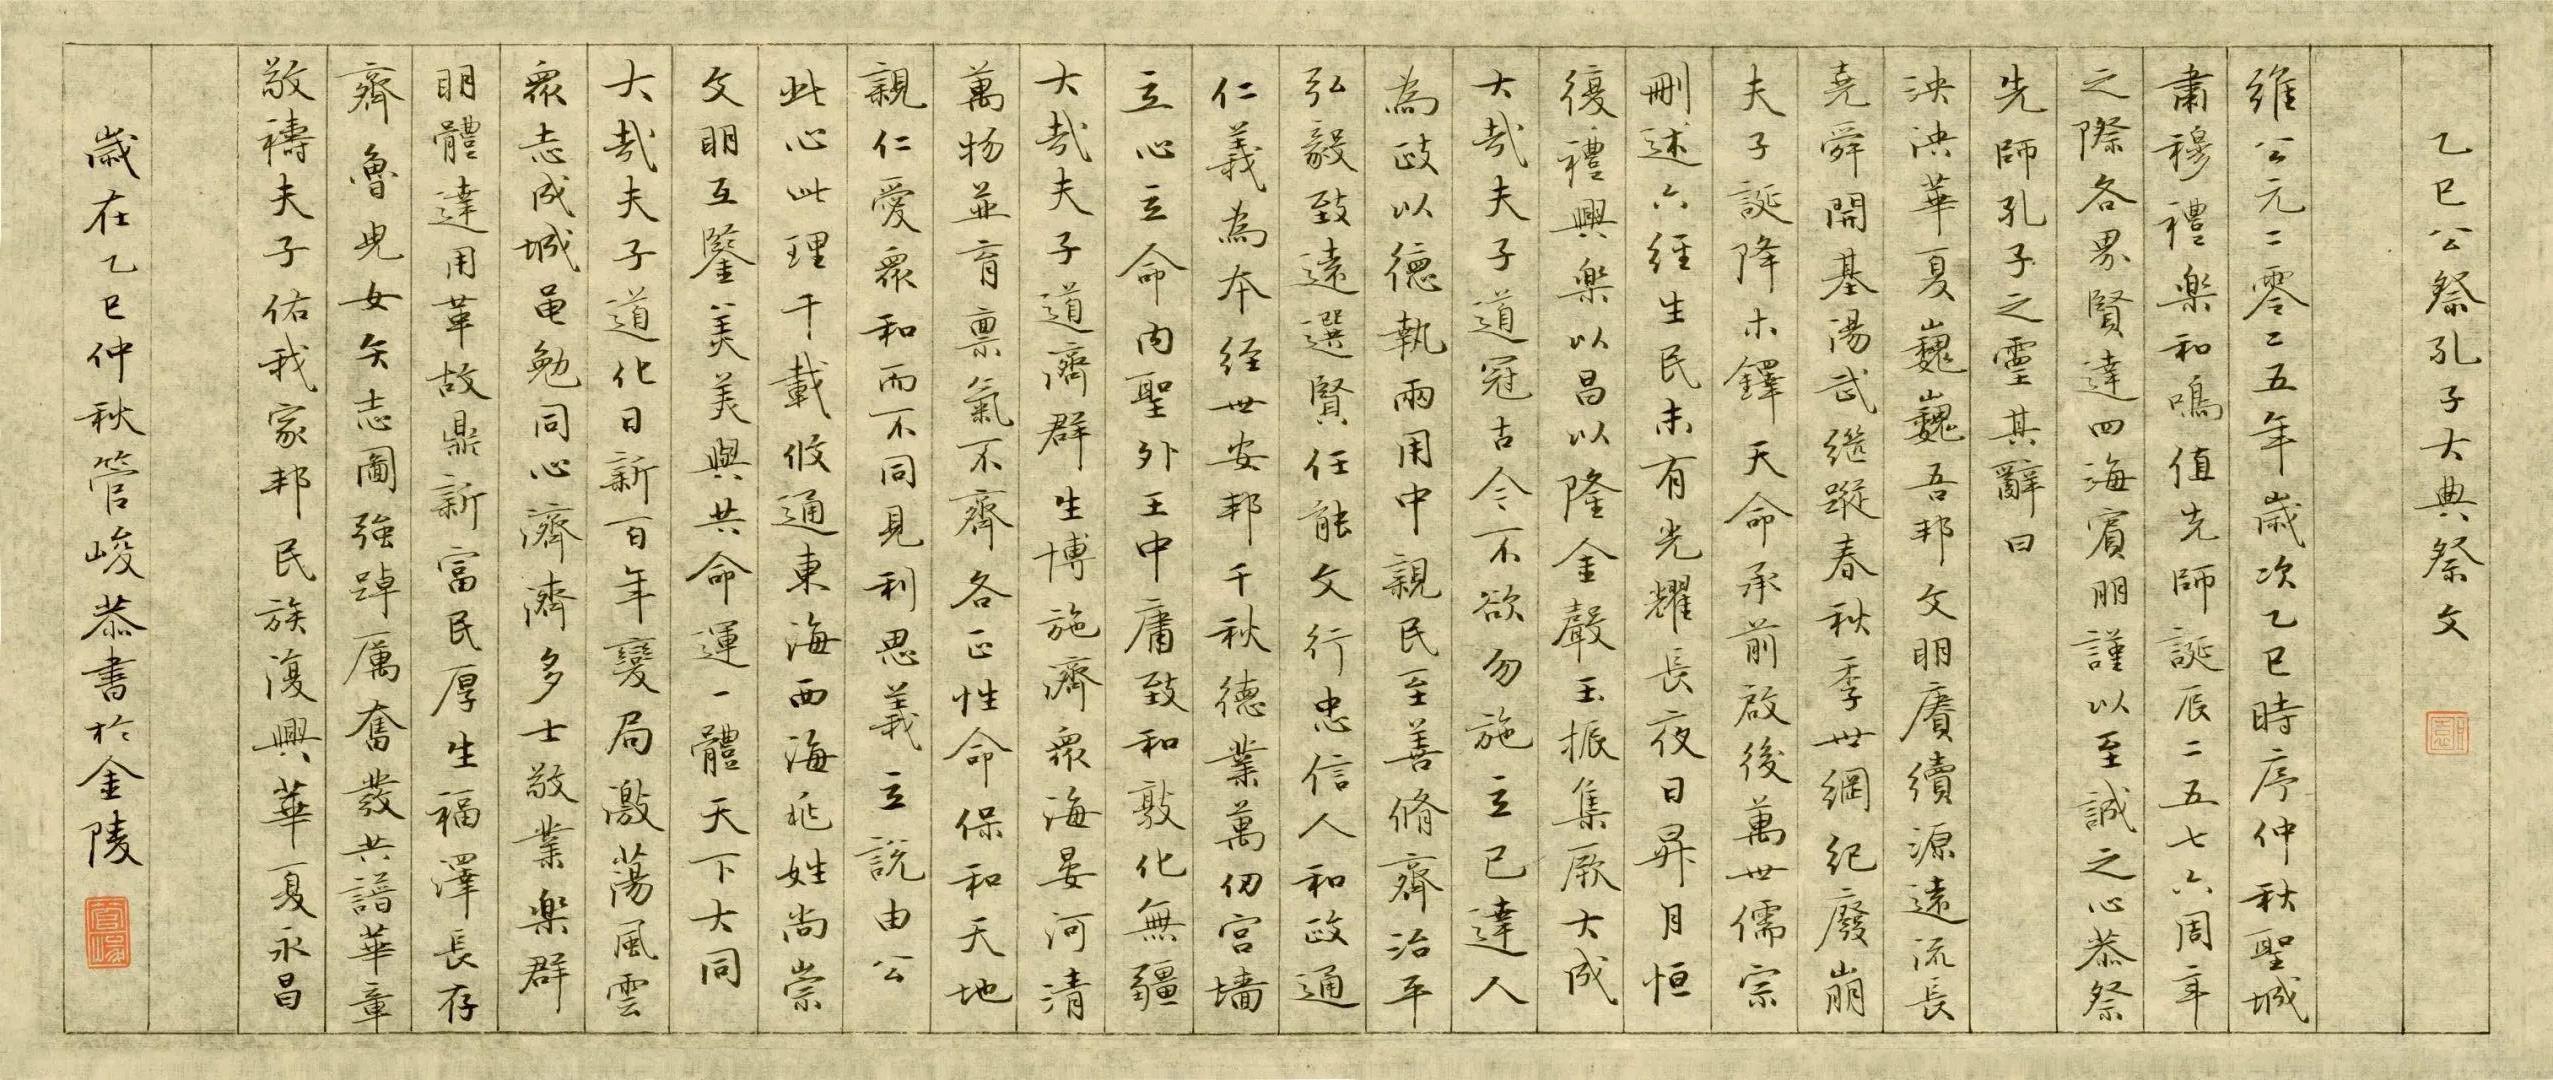 乙巳公祭孔子大典祭文
維公元二零二五年歲次乙巳時序仲秋聖城
肅穆禮樂和鳴值先師誕辰二五七六周年
之際各界賢達四海賓朋謹以至誠之心恭祭
先師孔子之靈其辭曰
泱泱華夏巍巍吾邦文明賡續源遠流長
堯舜開基湯武繼蹤春秋季世綱紀廢崩
夫子誕降木鐸天命承前啟後萬世儒宗
刪述六經生民未有光耀長夜日昇月恒
復禮興樂以昌以隆金聲玉振集厥大成
大哉夫子道冠古今不欲勿施立己達人
為政以德執兩用中親民至善脩齊治平
弘毅致遠選賢任能文行忠信人和政通
仁義為本經世安邦千秋德業萬仞宮墻
立心立命內聖外王中庸致和敦化無疆
大哉夫子道濟群生博施濟眾海晏河清
萬物並育稟氣不齊各正性命保和天地
親仁愛眾和而不同見利思義立說由公
此心此理千載攸通東海西海丕姓尚崇
文明互鑒美美與共命運一體天下大同
大哉夫子道化日新百年變局激蕩風雲
眾志成城黽勉同心濟濟多士敬業樂群
明體達用革故鼎新富民厚生福澤長存
齊魯兒女矢志圖強踔厲奮發共譜華章
敬禱夫子佑我家邦民族復興華夏永昌
歲在乙巳仲秋管峻恭書於金陵